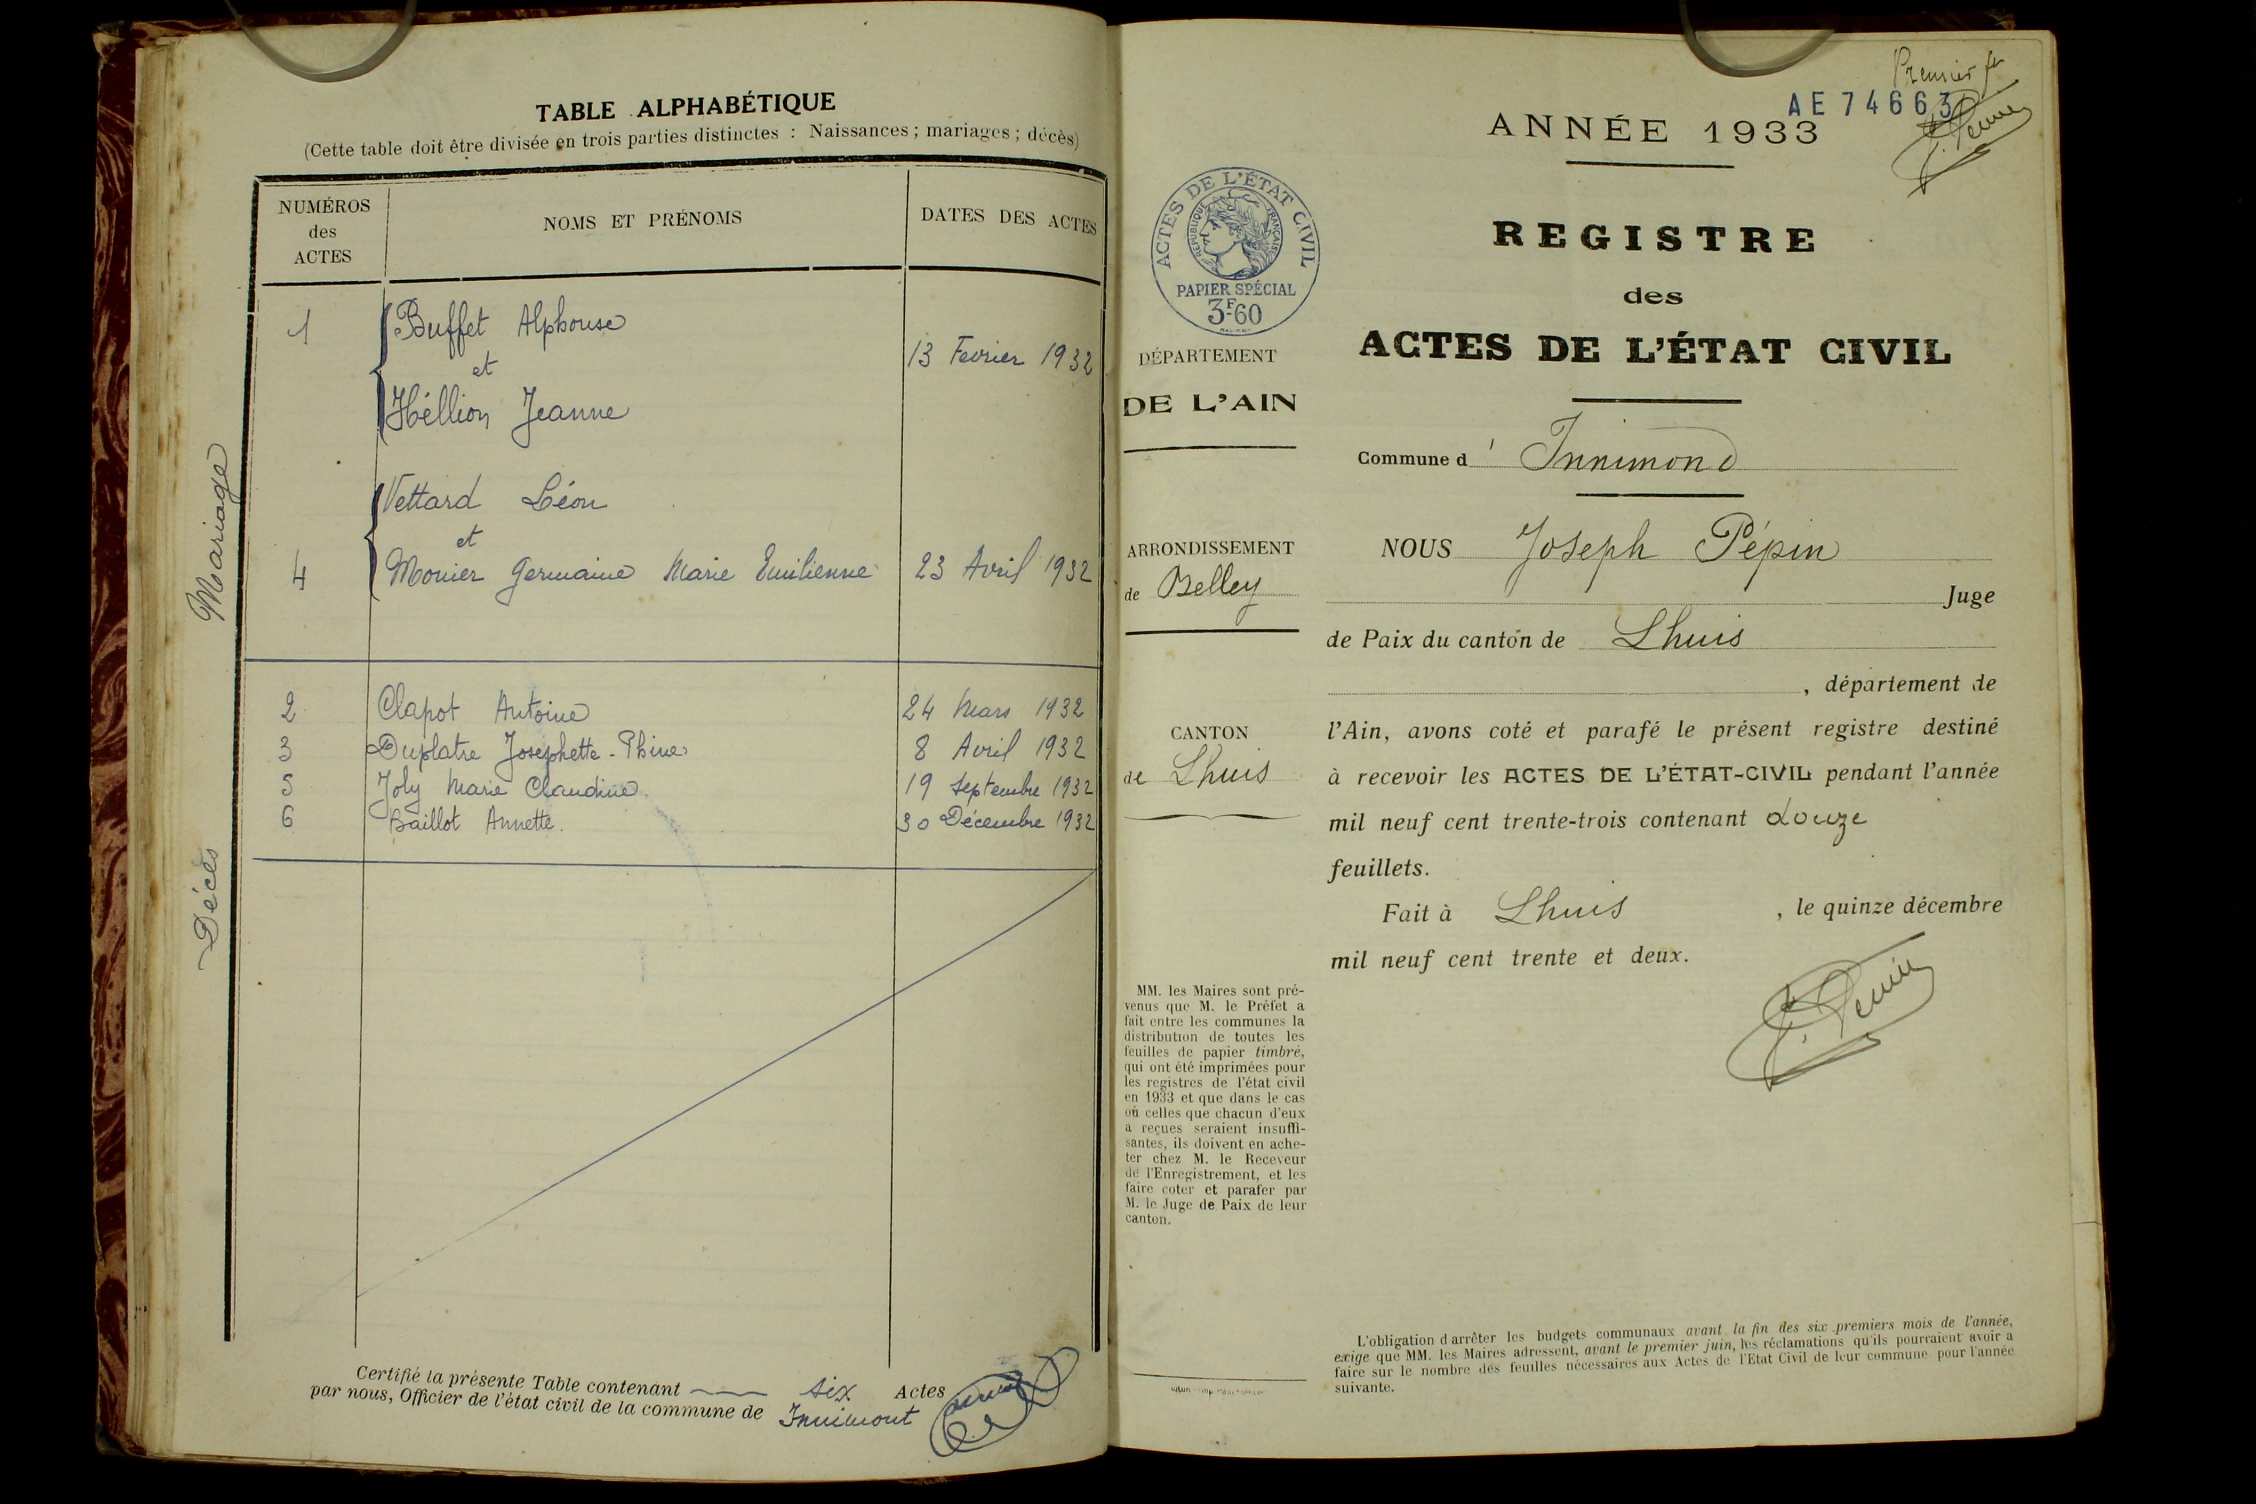 TABLE ALPHABÉTIQUE
(Cette table doit être divisée en trois parties distinctes : Naissances ; mariages ; décès)
NUMÉROS
des
ACTES
NOMS ET PRÉNOMS
DATES DES ACTES
Mariage
1 Buffet Alphonse
et
13 Fevrier 1932
Héllion Jeanne
Vettard Léon
et
4 Monier Germaine Marie Emilienne 23 Avril 1932
Décès
2 Clapot Antoine 24 Mars 1932
3 Duplatre Josephette - Phine 8 Avril 1932
5 Joly Marie Claudine 19 Septembre 1932
6 Baillot Annette. 30 Décembre 1932
Certifié la présente Table contenant six Actes
par nous, Officier de l'état civil de la commune de Innimont
Premier
AE 74663
ANNÉE 1933
REGISTRE
des
ACTES DE L'ÉTAT CIVIL
ACTES DE L'ÉTAT CIVIL
RÉPUBLIQUE FRANÇAISE
PAPIER SPÉCIAL
3F60
DÉPARTEMENT
DE L'AIN
ARRONDISSEMENT
de Belley
CANTON
de Lhuis
MM. les Maires sont pré-
venus que M. le Préfet a
fait entre les communes la
distribution de toutes les
feuilles de papier timbré,
qui ont été imprimées pour
les registres de l'état civil
en 1933 et que dans le cas
où celles que chacun d'eux
a reçues seraient insuffi-
santes, ils doivent en ache-
ter chez M. le Receveur
de l'Enregistrement, et les
faire coter et parafer par
M. le Juge de Paix de leur
canton.
Commune d' Innimond
NOUS Joseph Pépin
Juge
de Paix du canton de Lhuis
, département de
l'Ain, avons coté et parafé le présent registre destiné
à recevoir les ACTES DE L'ÉTAT-CIVIL pendant l'année
mil neuf cent trente-trois contenant douze
feuillets.
Fait à Lhuis , le quinze décembre
mil neuf cent trente et deux.
L'obligation d'arrêter les budgets communaux avant la fin des six premiers mois de l'année,
exige que MM. les Maires adressent, avant le premier juin, les réclamations qu'ils pourraient avoir à
faire sur le nombre des feuilles nécessaires aux Actes de l'Etat Civil de leur commune pour l'année
suivante.